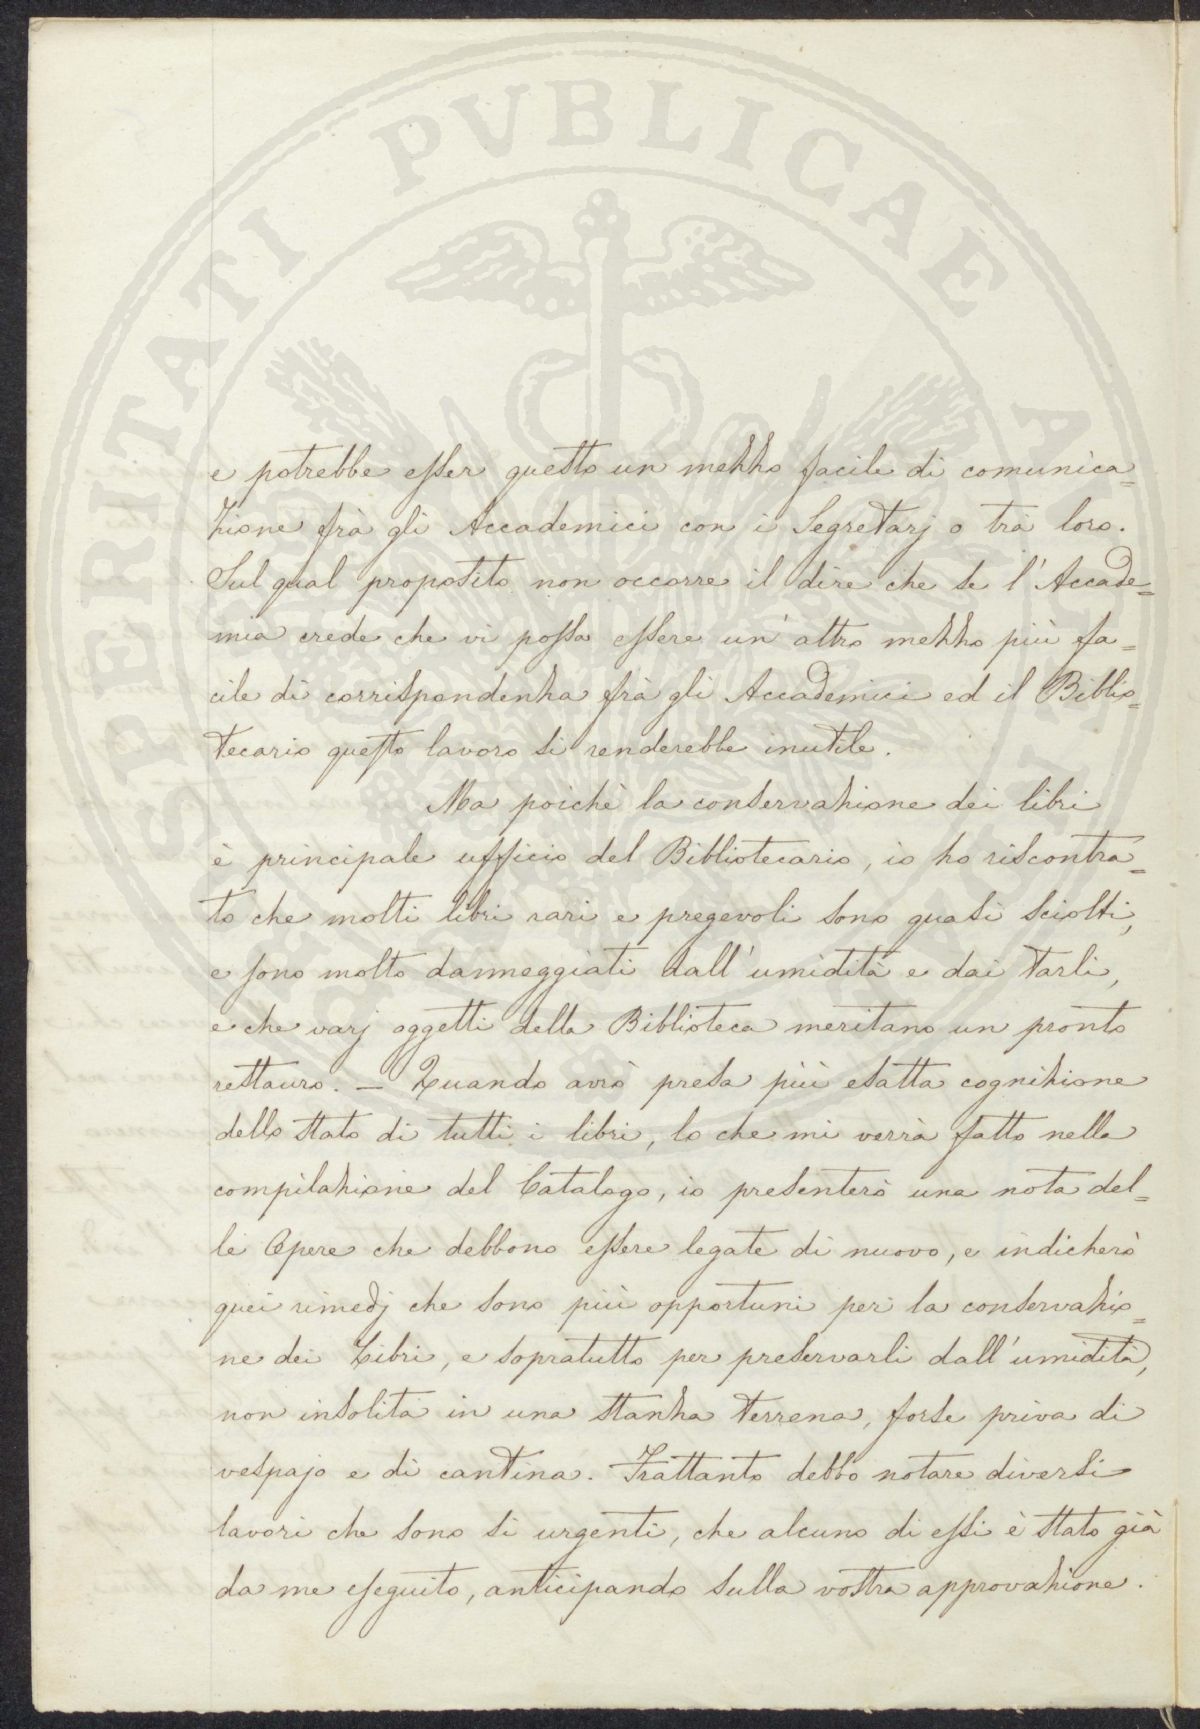 PROSPERITATI PVBLICAE AVGENDAE
e potrebbe esser questo un mezzo facile di comunica=
zione frà gli Accademici con i Segretarj o trà loro.
Sul qual proposito non occorre il dire che se l'Accade=
mia crede che vi possa essere un' altro mezzo più fa=
cile di corrispondenza frà gli Accademici ed il Biblio=
tecario questo lavoro si renderebbe inutile.
Ma poichè la conservazione dei libri
è principale ufficio del Bibliotecario, io ho riscontra=
to che molti libri rari e pregevoli sono quasi sciolti,
e sono molto danneggiati dall'umidità e dai tarli,
e che varj oggetti della Biblioteca meritano un pronto
restauro. — Quando avrò presa più esatta cognizione
dello stato di tutti i libri, lo che mi verrà fatto nella
compilazione del Catalogo, io presenterò una nota del=
le Opere che debbono essere legate di nuovo, e indicherò
quei rimedj che sono più opportuni per la conservazio=
ne dei Libri, e sopratutto per preservarli dall'umidità,
non insolita in una stanza terrena, forse priva di
vespajo e di cantina. Frattanto debbo notare diversi
lavori che sono sì urgenti, che alcuno di essi è stato già
da me eseguito, anticipando sulla vostra approvazione.